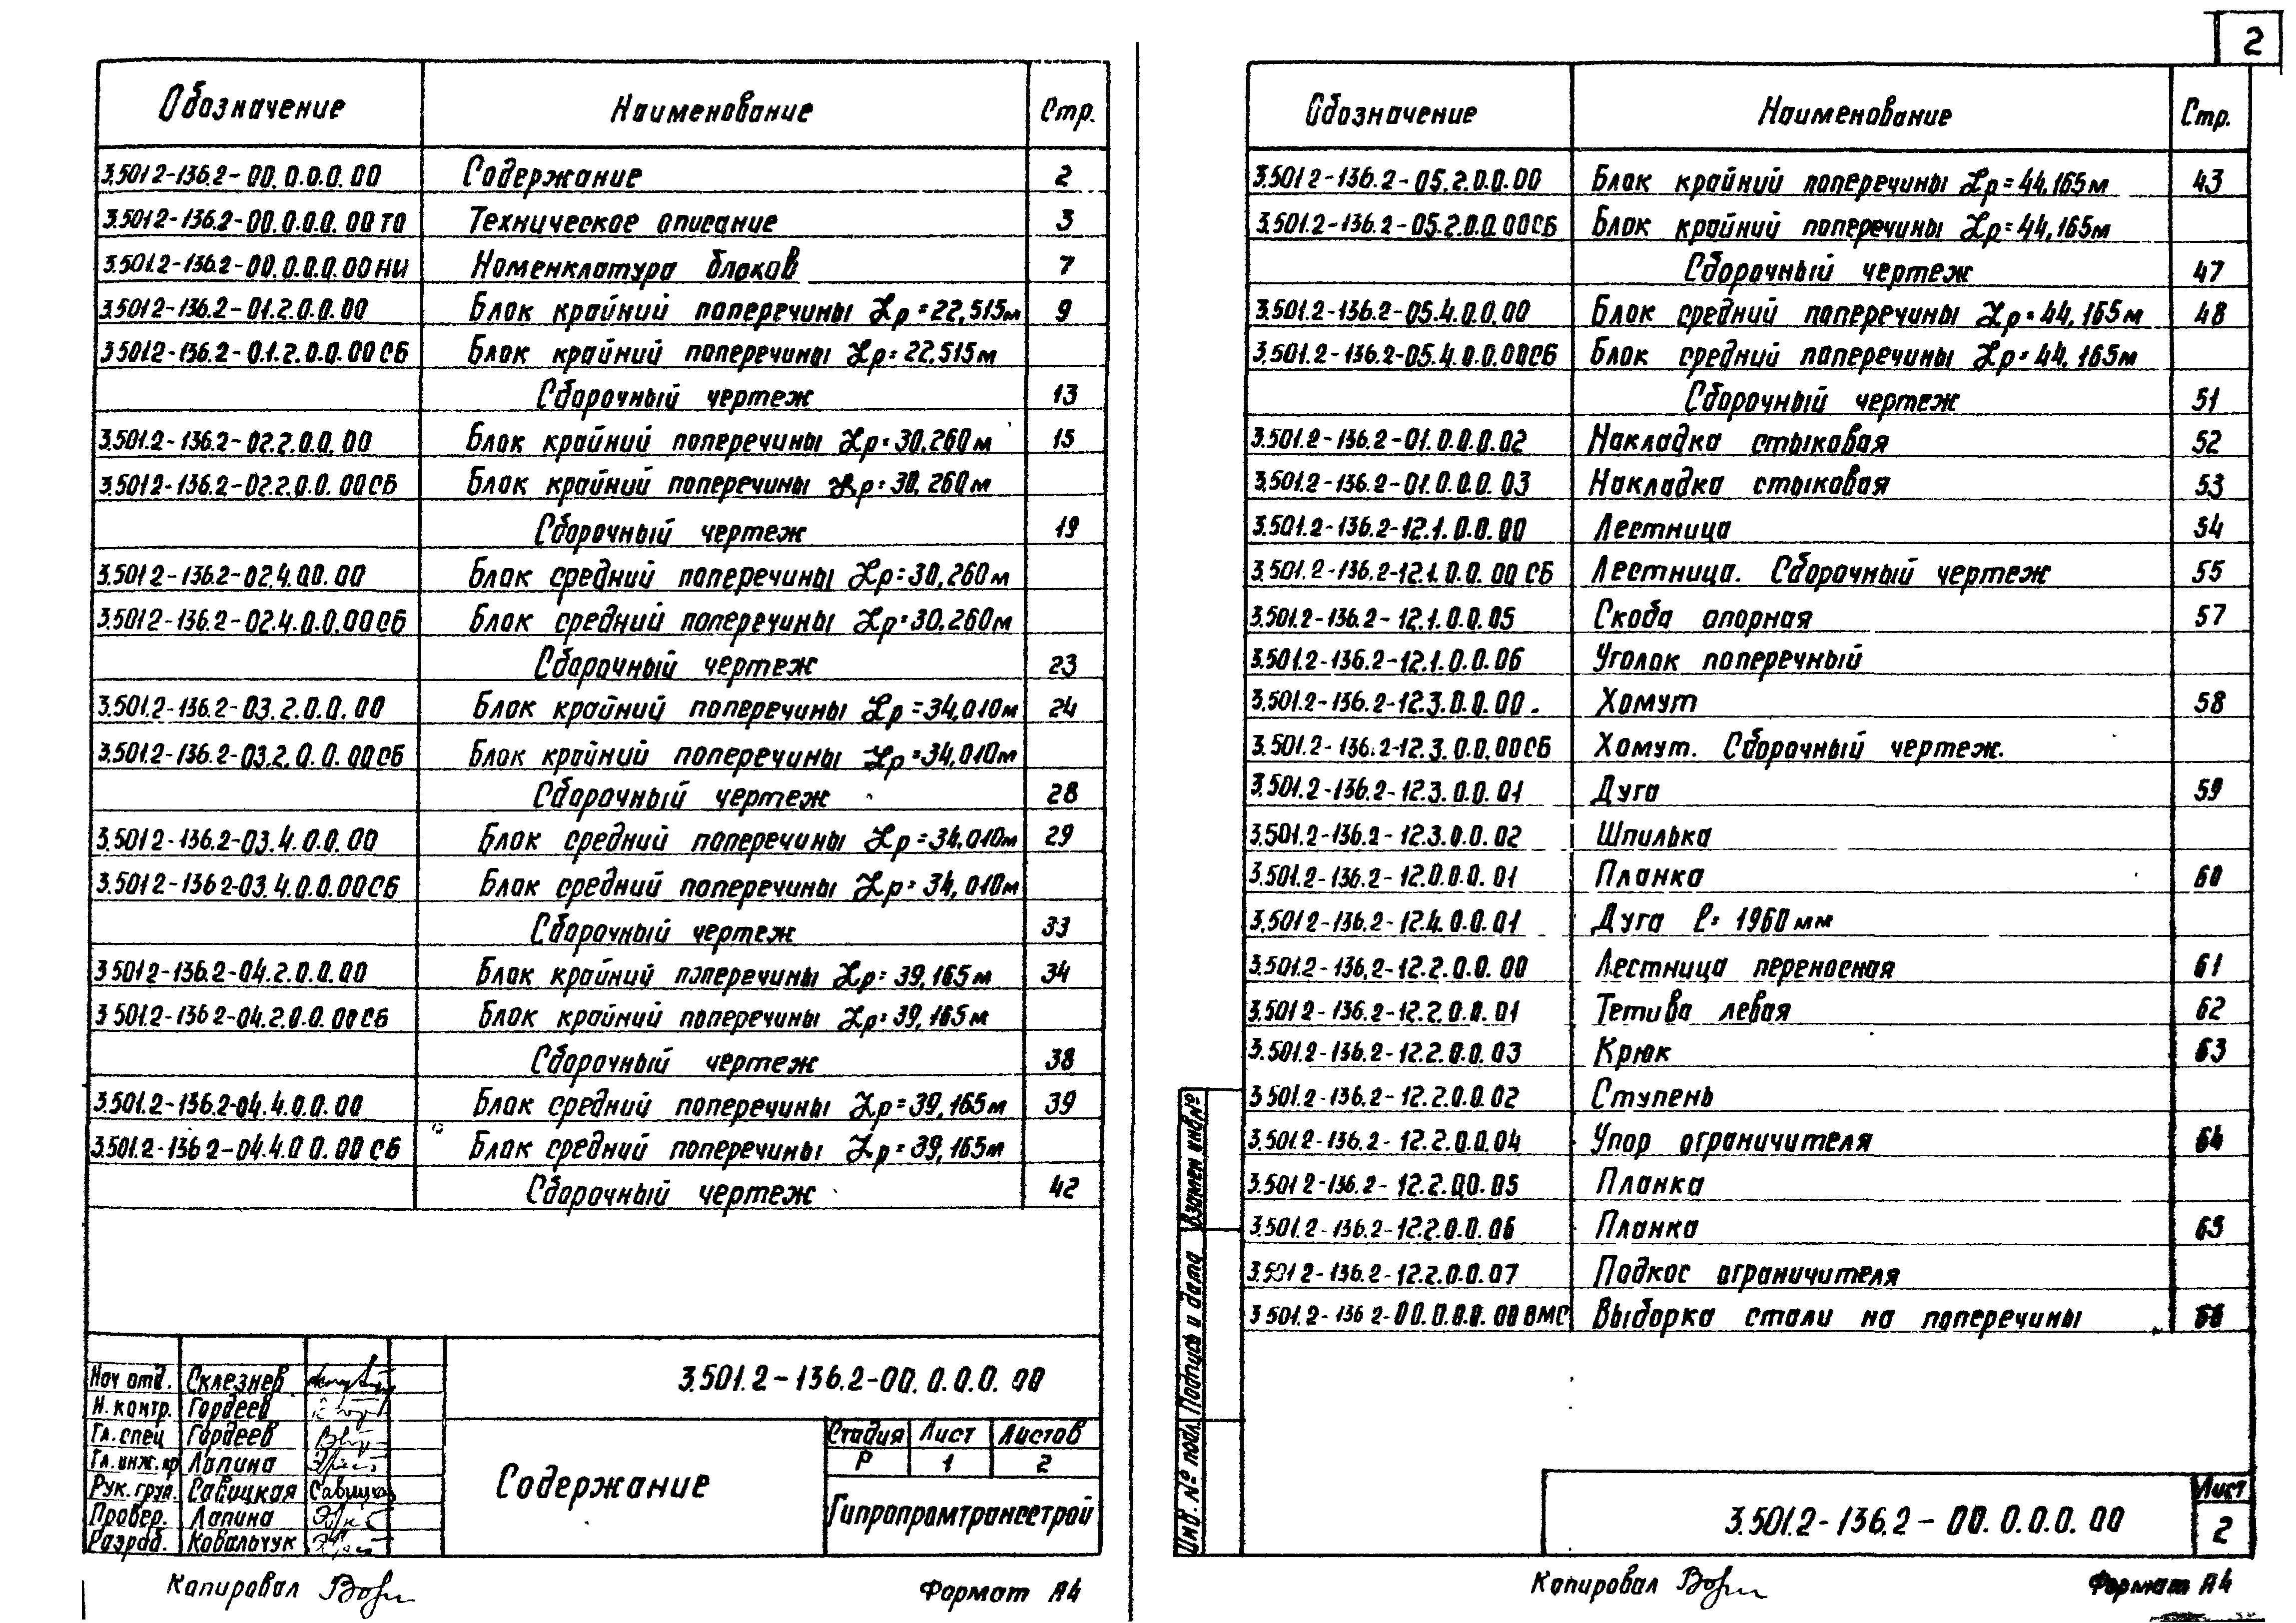 2
Обозначение Наименование Стр.
3.501.2-136.2-00.0.0.0.00 Содержание 2
3.501.2-136.2-00.0.0.0.00ТО Техническое описание 3
3.501.2-136.2-00.0.0.0.00НИ Номенклатура блоков 7
3.501.2-136.2-01.2.0.0.00 Блок крайний поперечины Lр=22,515м 9
3.501.2-136.2-01.2.0.0.00СБ Блок крайний поперечины Lр=22,515м
Сборочный чертеж 13
3.501.2-136.2-02.2.0.0.00 Блок крайний поперечины Lр=30,260м 15
3.501.2-136.2-02.2.0.0.00СБ Блок крайний поперечины Lр=30,260м
Сборочный чертеж 19
3.501.2-136.2-02.4.0.0.00 Блок средний поперечины Lр=30,260м
3.501.2-136.2-02.4.0.0.00СБ Блок средний поперечины Lр=30,260м
Сборочный чертеж 23
3.501.2-136.2-03.2.0.0.00 Блок крайний поперечины Lр=34,010м 24
3.501.2-136.2-03.2.0.0.00СБ Блок крайний поперечины Lр=34,010м
Сборочный чертеж 28
3.501.2-136.2-03.4.0.0.00 Блок средний поперечины Lр=34,010м 29
3.501.2-136.2-03.4.0.0.00СБ Блок средний поперечины Lр=34,010м
Сборочный чертеж 33
3.501.2-136.2-04.2.0.0.00 Блок крайний поперечины Lр=39,165м 34
3.501.2-136.2-04.2.0.0.00СБ Блок крайний поперечины Lр=39,165м
Сборочный чертеж 38
3.501.2-136.2-04.4.0.0.00 Блок средний поперечины Lр=39,165м 39
3.501.2-136.2-04.4.0.0.00СБ Блок средний поперечины Lр=39,165м
Сборочный чертеж 42
3.501.2-136.2-00.0.0.0.00
Нач отд. Склезнев
Н. контр. Гордеев
Гл. спец Гордеев
Гл. инж. пр Лапина
Рук. груп. Савицкая Савицкая
Провер. Лапина
Разраб. Ковальчук
Содержание
Стадия Лист Листов
Р 1 2
Гипропромтрансстрой
Копировал
Формат А4
Обозначение Наименование Стр.
3.501.2-136.2-05.2.0.0.00 Блок крайний поперечины Lр=44,165м 43
3.501.2-136.2-05.2.0.0.00СБ Блок крайний поперечины Lр=44,165м
Сборочный чертеж 47
3.501.2-136.2-05.4.0.0.00 Блок средний поперечины Lр=44,165м 48
3.501.2-136.2-05.4.0.0.00СБ Блок средний поперечины Lр=44,165м
Сборочный чертеж 51
3.501.2-136.2-01.0.0.0.02 Накладка стыковая 52
3.501.2-136.2-01.0.0.0.03 Накладка стыковая 53
3.501.2-136.2-12.1.0.0.00 Лестница 54
3.501.2-136.2-12.1.0.0.00СБ Лестница. Сборочный чертеж 55
3.501.2-136.2-12.1.0.0.05 Скоба опорная 57
3.501.2-136.2-12.1.0.0.06 Уголок поперечный
3.501.2-136.2-12.3.0.0.00. Хомут 58
3.501.2-136.2-12.3.0.0.00СБ Хомут. Сборочный чертеж.
3.501.2-136.2-12.3.0.0.01 Дуга 59
3.501.2-136.2-12.3.0.0.02 Шпилька
3.501.2-136.2-12.0.0.0.01 Планка 60
3.501.2-136.2-12.4.0.0.01 Дуга ℓ=1960мм
3.501.2-136.2-12.2.0.0.00 Лестница переносная 61
3.501.2-136.2-12.2.0.0.01 Тетива левая 62
3.501.2-136.2-12.2.0.0.03 Крюк 63
3.501.2-136.2-12.2.0.0.02 Ступень
3.501.2-136.2-12.2.0.0.04 Упор ограничителя 64
3.501.2-136.2-12.2.0.0.05 Планка
3.501.2-136.2-12.2.0.0.06 Планка 65
3.501.2-136.2-12.2.0.0.07 Подкос ограничителя
3.501.2-136.2-00.0.0.0.00ВМС Выборка стали на поперечины 66
Инв. № подл. Подпись и дата Взамен инв.№
3.501.2-136.2-00.0.0.0.00
Лист
2
Копировал
Формат А4